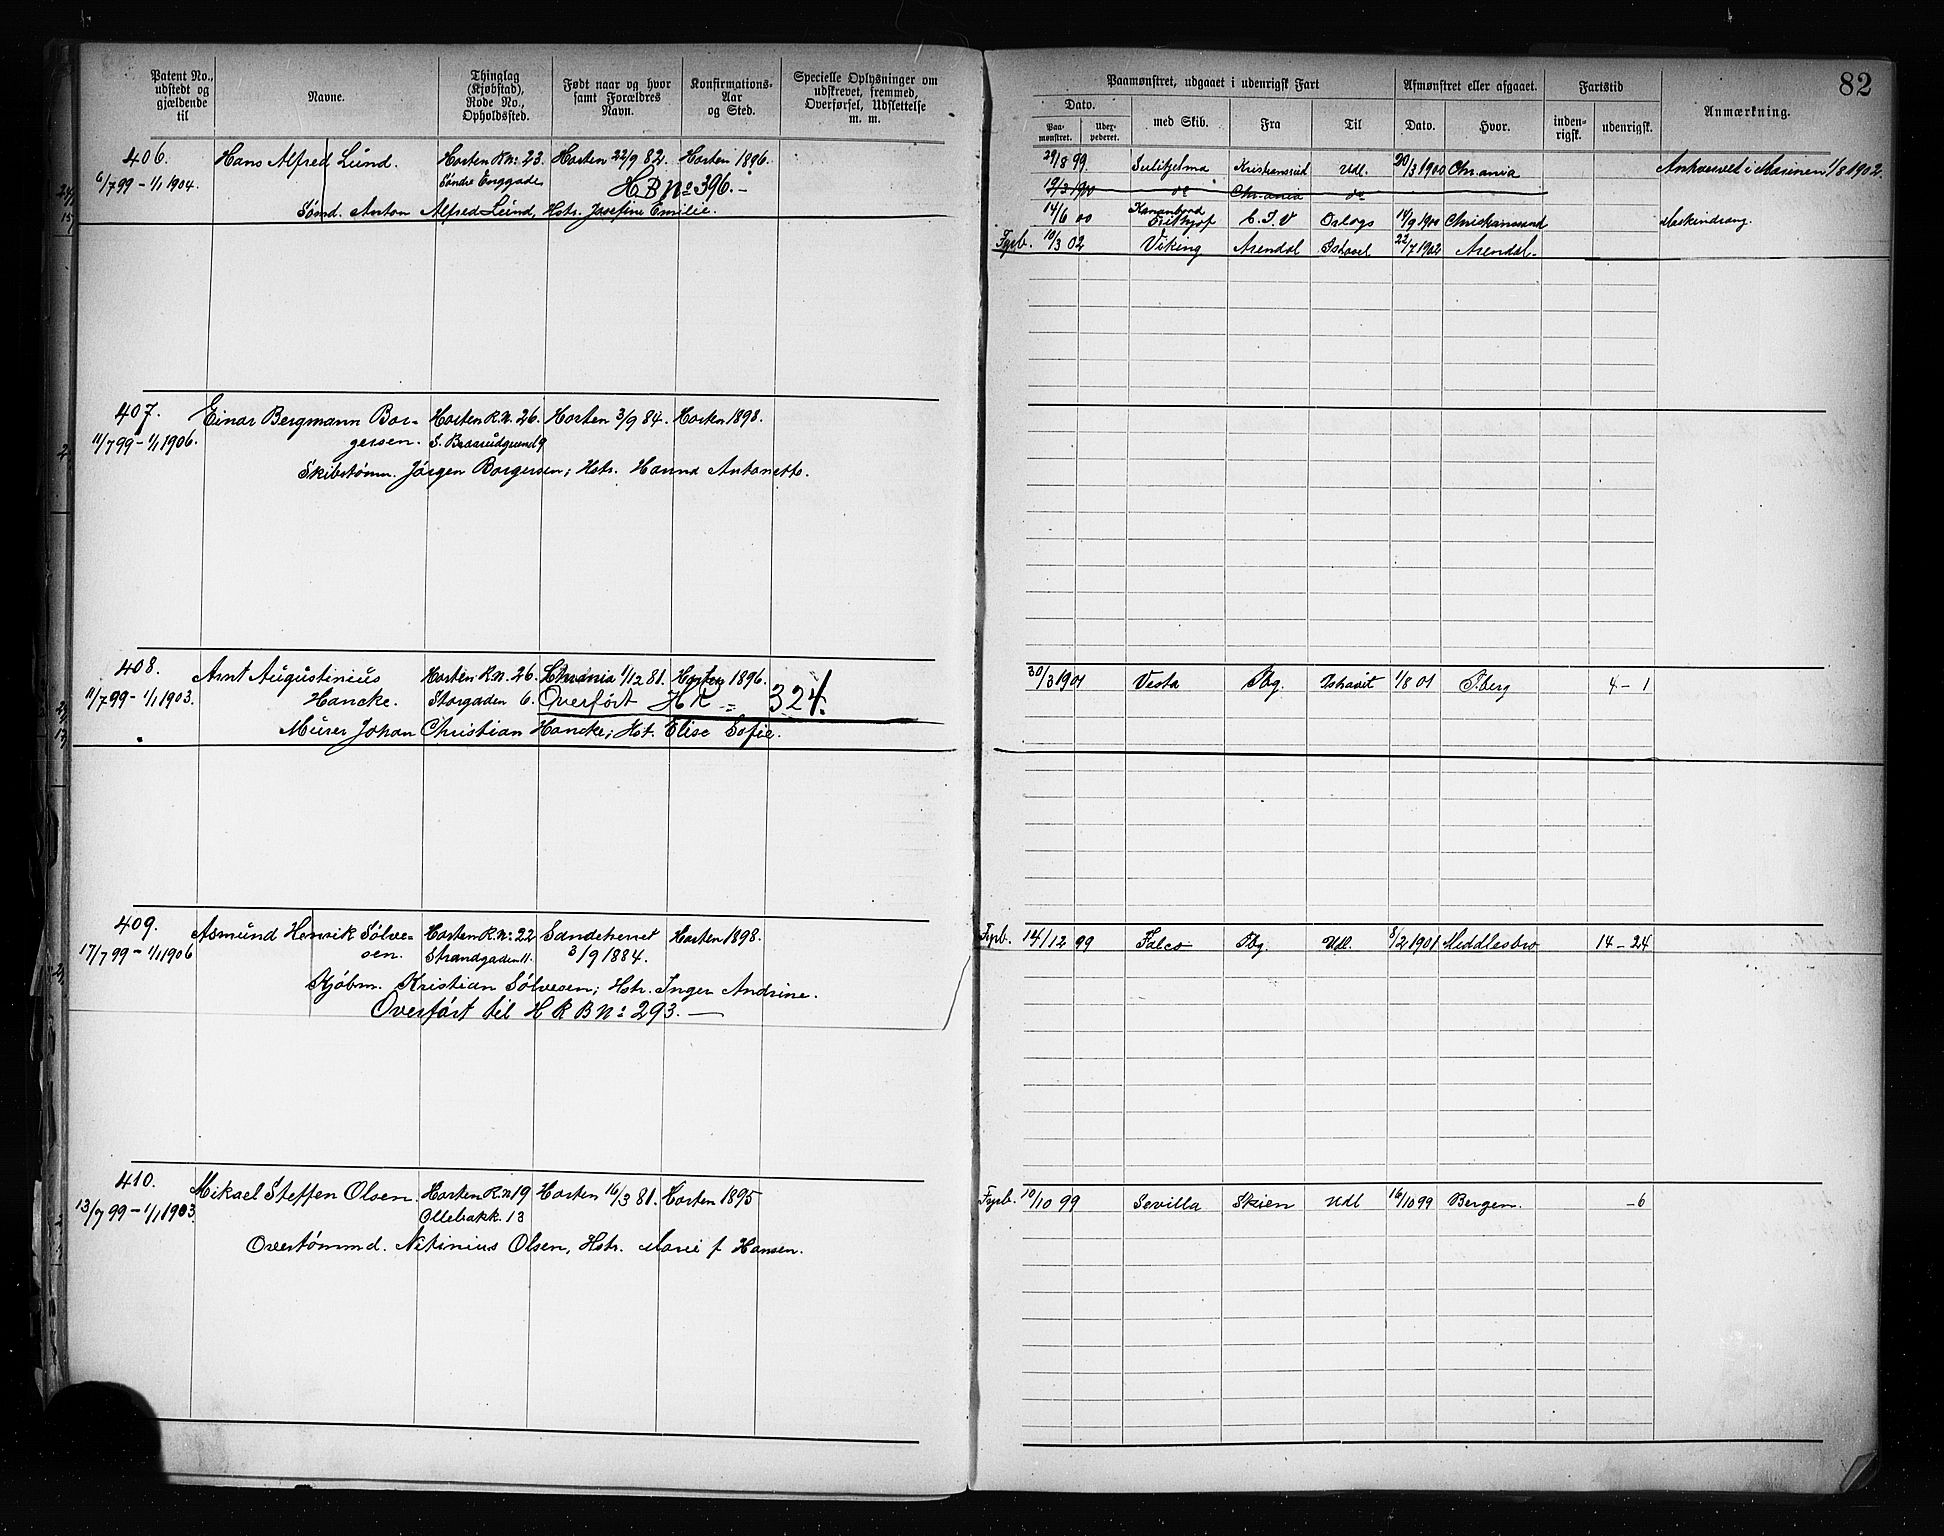 Patent No., udstedt og gjældende til
Navne.
Thinglag (Kjøbstad), Rode No., Opholdssted.
Født naar og hvor samt Forældres Navn.
Konfirmations-Aar og Sted.
Specielle Oplysninger om udskrevet, fremmed, Overførsel, Udslettelse m. m.
406. Hans Alfred Lund. Horten R.N: 23. Horten 22/9 82. Horten 1896.
6/7 99 – 1/1 1904. Søndre Enggade HB No 396. –
Sømd. Anton Alfred Lund, Hstr. Josefine Emilie.
407. Einar Bergmann Bor- Horten R.N. 26. Horten 3/9 84. Horten 1898.
11/7 99 – 1/1 1906. gersen.
Skibstømm. Jørgen Borgersen; Hstr. Hanna Antonette.
408. Arnt Augustinius Horten R.N. 26. Chrania 1/12 81. Horten 1896.
11/7 99 – 1/1 1903. Hancke. Storgaden 6. Overført HR 324.
Murer Johan Christian Hancke; Hst. Elise Sofie.
409. Asmund Henrik Sølve- Horten R.N: 22 Sandeherret Horten 1898.
17/7 99 – 1/1 1906 sen. Strandgaden 11. 3/9 1884.
Kjøbm. Kristian Sølvesen; Hstr. Inger Andrine.
Overført til H R B No: 293. —
410. Mikael Steffen Olsen. Horten R.N 19 Horten 16/3 81. Horten 1895
13/7 99 – 1/1 1903. Ollebakk. 13
Overtømmd. Nitinius Olsen, Hstr. Marie f Hansen.
82
Paamønstret, udgaaet i udenrigsk Fart
Afmønstret eller afgaaet.
Fartstid
Anmærkning.
Dato.
Paa-mønstret.
Uder-pederet.
med Skib.
Fra
Til
Dato.
Hvor.
inden-rigsk.
udenrigsk.
29/8 99 Sulitjelma Kristianssud Udl. 20/3 1900 Chrania Ankvervet i Marinen 1/8 1902.
19/3 1900 do Chrania do
14/6 00 Kanonbord Frithjof C.J.V Orlogs 14/9 1900 Christianssand Maskindreng.
Fyrb. 10/3 02 Viking Arendal Ishavet 22/7 1902 Arendal.
30/3 1901 Vesta Tbg. Ishavet 1/8 01 T.berg 4 – 1
Fyrb. 14/12 99 Falco Tbg Udl. 8/2 1901 Middlesbro 14 – 24
Fyrb. 10/10 99 Sevilla Skien Udl 16/10 99 Bergen. – 6